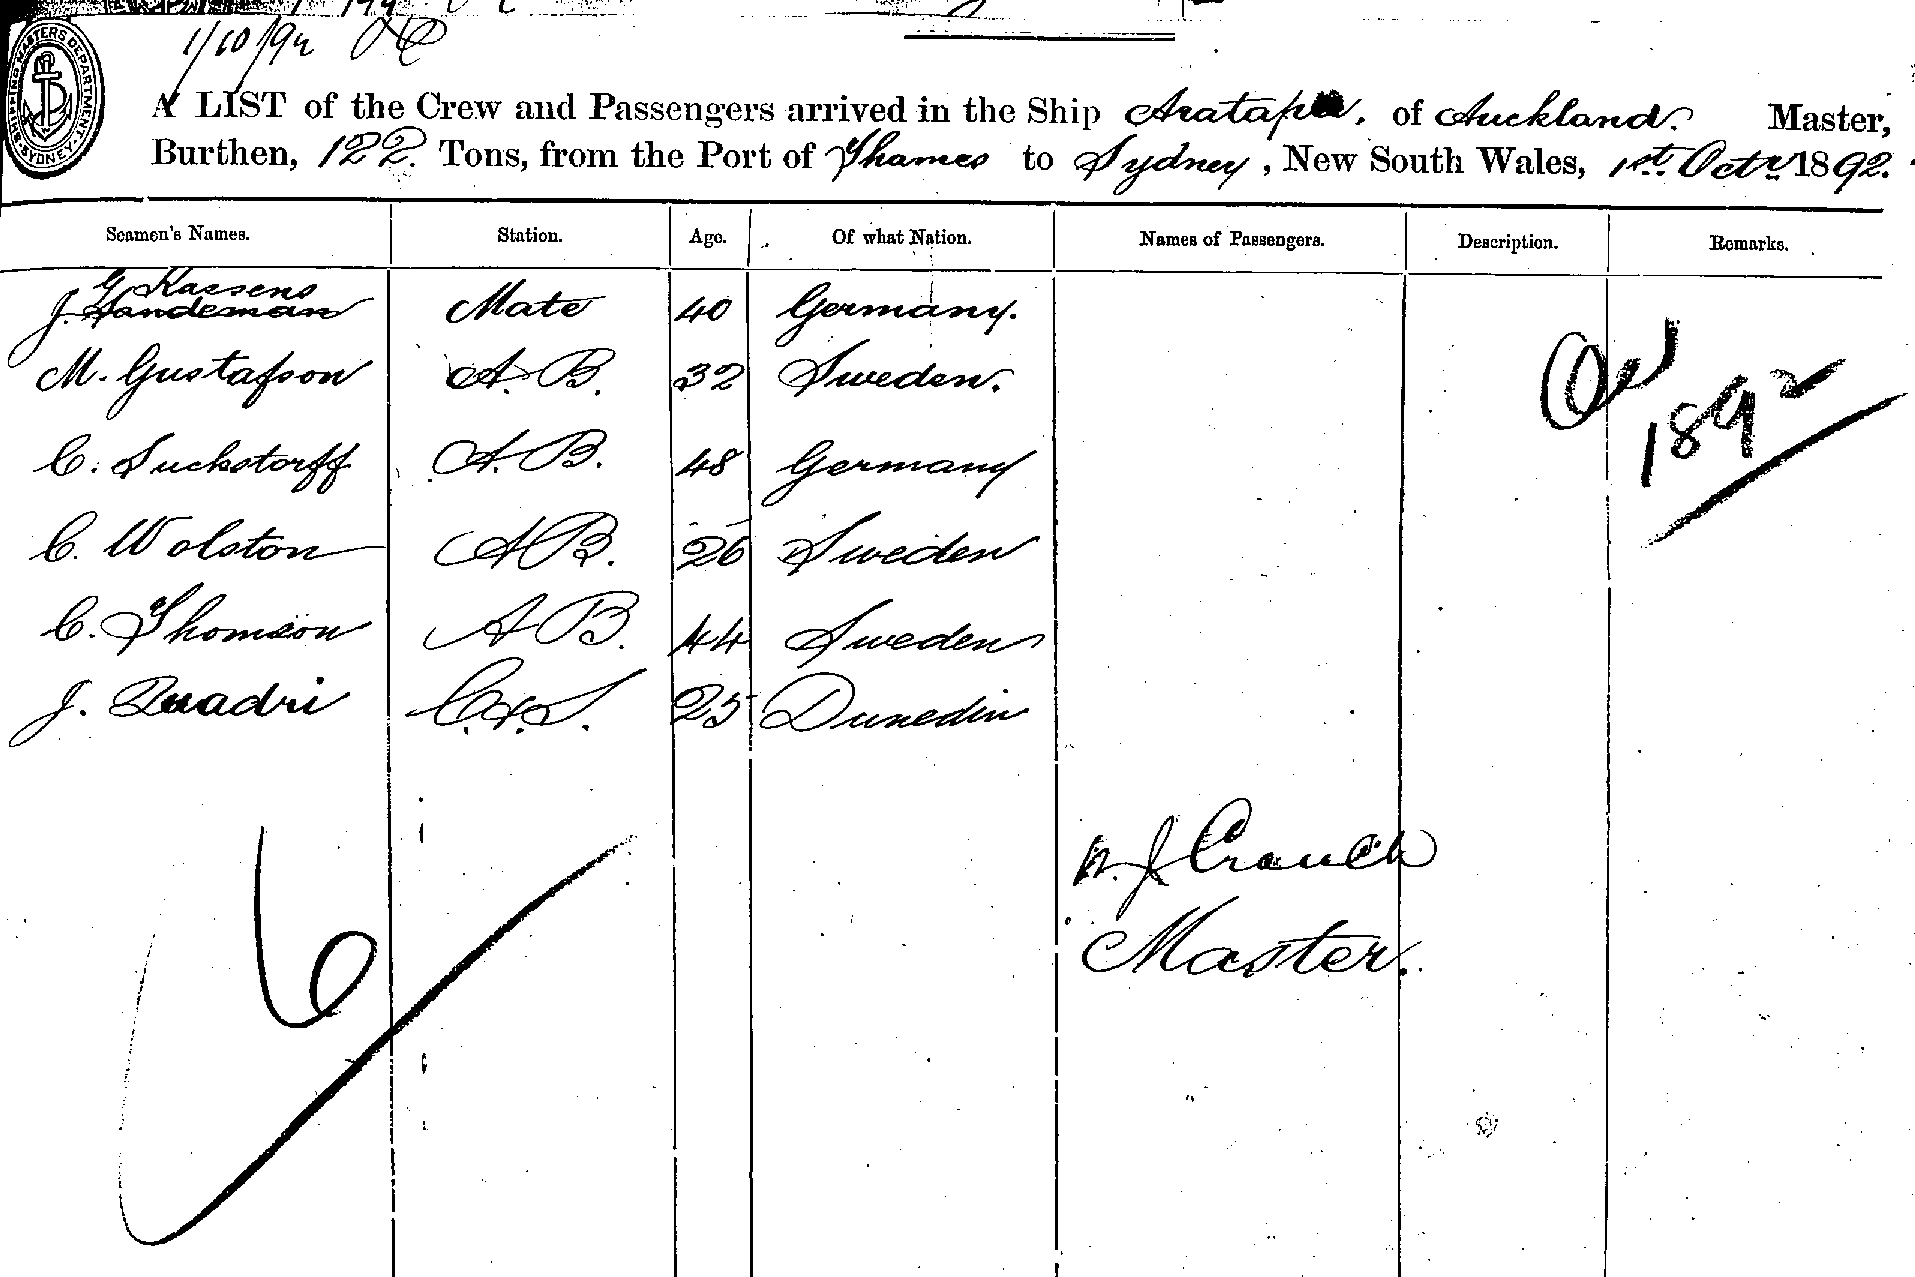 1/10/92
SHIPPING MASTERS DEPARTMENT SYDNEY
A LIST of the Crew and Passengers arrived in the Ship Aratapu, of Auckland. Master,
Burthen, 122. Tons, from the Port of Thames to Sydney, New South Wales, 1st Octr 1892.
Seamen's Names. Station. Age. Of what Nation. Names of Passengers. Description. Remarks.
G Kassens
J. Sandeman Mate 40 Germany.
M. Gustafson A.B. 32 Sweden.
C. Suckstorff A.B. 48 Germany
C. Wolston AB. 26 Sweden
C. Thomson AB. 44 Sweden
J. Quadri C.&S. 25 Dunedin
1892
J Crouch
Master.
6